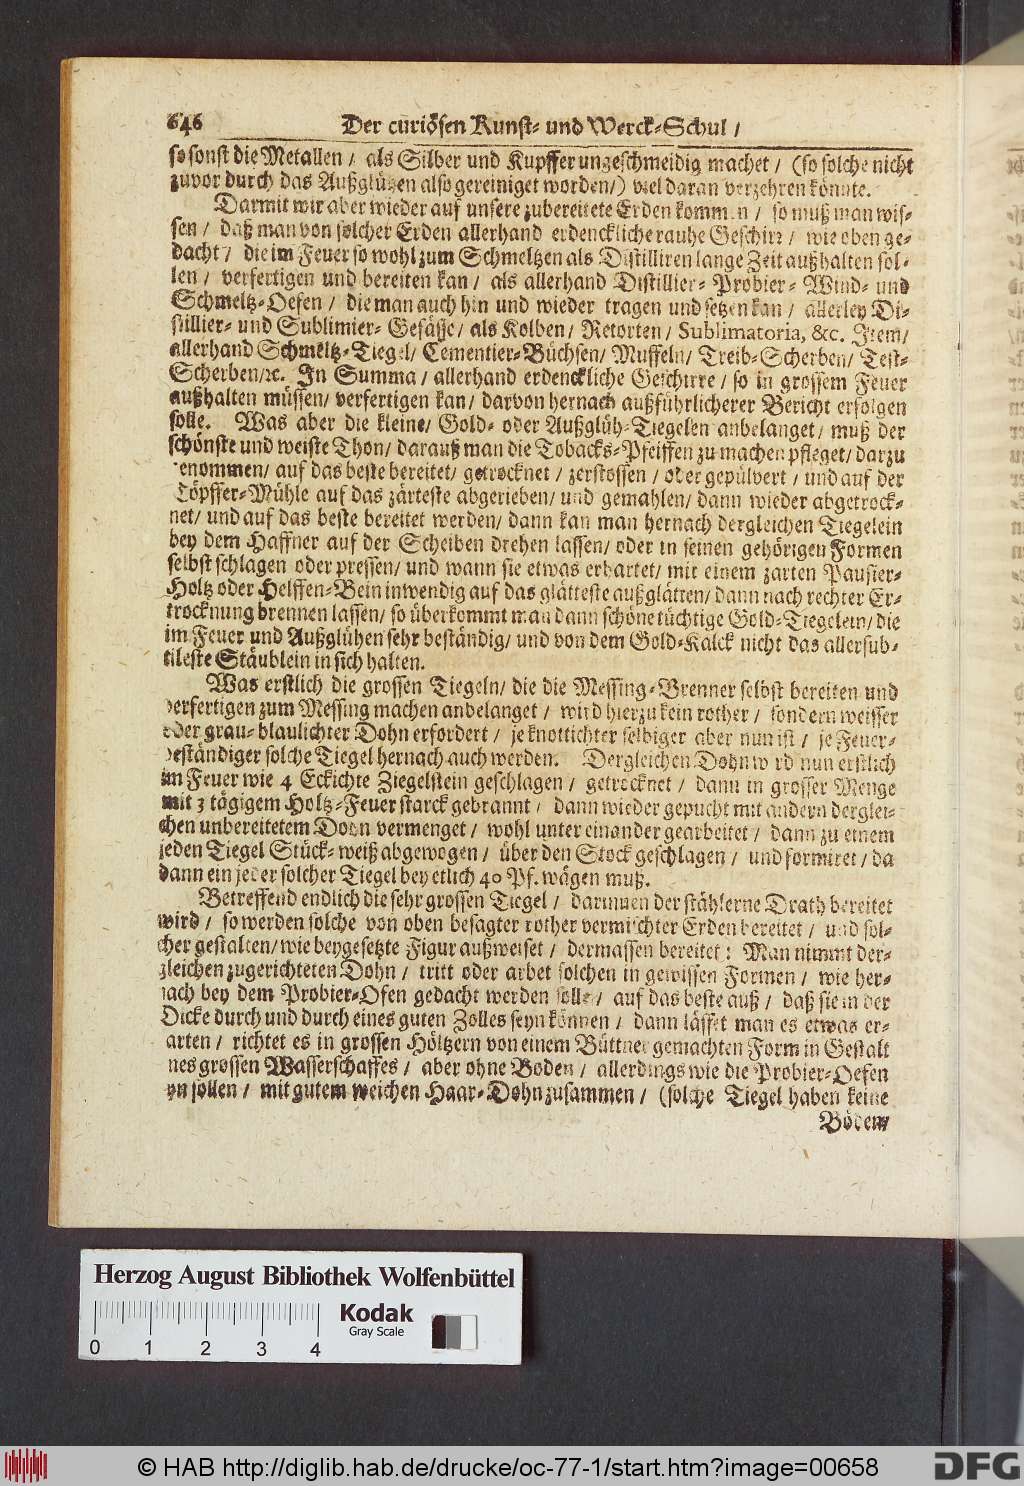 646 Der curiösen Kunst- und Werck-Schul /
so sonst die Metallen / als Silber und Kupffer ungeschmeidig machet / (so solche nicht
zuvor durch das Außglüen also gereiniget worden/) viel daran verzehren könnte.
Darmit wir aber wieder auf unsere zubereitete Erden kommen / so muß man wis-
sen / daß man von solcher Erden allerhand erdenckliche rauhe Geschirr / wie oben ge-
dacht / die im Feuer so wohl zum Schmeltzen als Distilliren lange Zeit außhalten sol-
len / verfertigen und bereiten kan / als allerhand Distillier- Probier- Wind- und
Schmeltz-Oefen / die man auch hin und wieder tragen und setzen kan / allerley Di-
stillier- und Sublimier- Gefässe / als Kolben / Retorten / Sublimatoria, &c. Item /
allerhand Schmeltz-Tiegel / Cementier-Büchsen / Muffeln / Treib-Scherben / Test-
Scherben/ꝛc. In Summa / allerhand erdenckliche Geschirre / so in grossem Feuer
außhalten müssen / verfertigen kan / darvon hernach außführlicherer Bericht erfolgen
solle. Was aber die kleine / Gold- oder Außglüh-Tiegelen anbelanget / muß der
schönste und weiste Thon / darauß man die Tobacks-Pfeiffen zu machen pfleget / darzu
enommen / auf das beste bereitet / getrocknet / zerstossen / oder gepülvert / und auf der
Töpffer-Mühle auf das zärteste abgerieben / und gemahlen / dann wieder abgetrock-
net / und auf das beste bereitet werden / dann kan man hernach dergleichen Tiegelein
bey dem Haffner auf der Scheiben drehen lassen / oder in seinen gehörigen Formen
selbst schlagen oder pressen / und wann sie etwas erhartet / mit einem zarten Pausier-
Holtz oder Helffen-Bein inwendig auf das glätteste außglätten / dann nach rechter Er-
trocknung brennen lassen / so überkommt man dann schöne tüchtige Gold-Tiegelein / die
im Feuer und Außglühen sehr beständig / und von dem Gold-Kalck nicht das allersub-
tileste Stäublein in sich halten.
Was erstlich die grossen Tiegeln / die die Messing-Brenner selbst bereiten und
verfertigen zum Messing machen anbelanget / wird hierzu kein rother / sondern weisser
oder grau-blaulichter Dohn erfordert / je knottichter selbiger aber nun ist / je Feuer-
beständiger solche Tiegel hernach auch werden. Dergleichen Dohn wird nun erstlich
im Feuer wie 4 Eckichte Ziegelstein geschlagen / getrocknet / dann in grosser Menge
mit 3 tägigem Holtz-Feuer starck gebrannt / dann wieder gepucht mit andern derglei-
chen unbereitetem Dohn vermenget / wohl unter einander gearbeitet / dann zu einem
jeden Tiegel Stück-weiß abgewogen / über den Stock geschlagen / und formiret / da
dann ein jeder solcher Tiegel bey etlich 40 Pf. wägen muß.
Betreffend endlich die sehr grossen Tiegel / darinnen der stählerne Drath bereitet
wird / so werden solche von oben besagter rother vermischter Erden bereitet / und sol-
cher gestalten / wie beygesetzte Figur außweiset / dermassen bereitet : Man nimmt der-
gleichen zugerichteten Dohn / tritt oder arbet solchen in gewissen Formen / wie her-
nach bey dem Probier-Ofen gedacht werden solle / auf das beste auß / daß sie in der
Dicke durch und durch eines guten Zolles seyn können / dann lässet man es etwas er-
arten / richtet es in grossen Höltzern von einem Büttner gemachten Form in Gestalt
nes grossen Wasserschaffes / aber ohne Boden / allerdings wie die Probier-Oefen
yn sollen / mit gutem weichen Haar-Dohn zusammen / (solche Tiegel haben keine
Böden/
Herzog August Bibliothek Wolfenbüttel
Kodak
Gray Scale
0 1 2 3 4
© HAB http://diglib.hab.de/drucke/oc-77-1/start.htm?image=00658
DFG